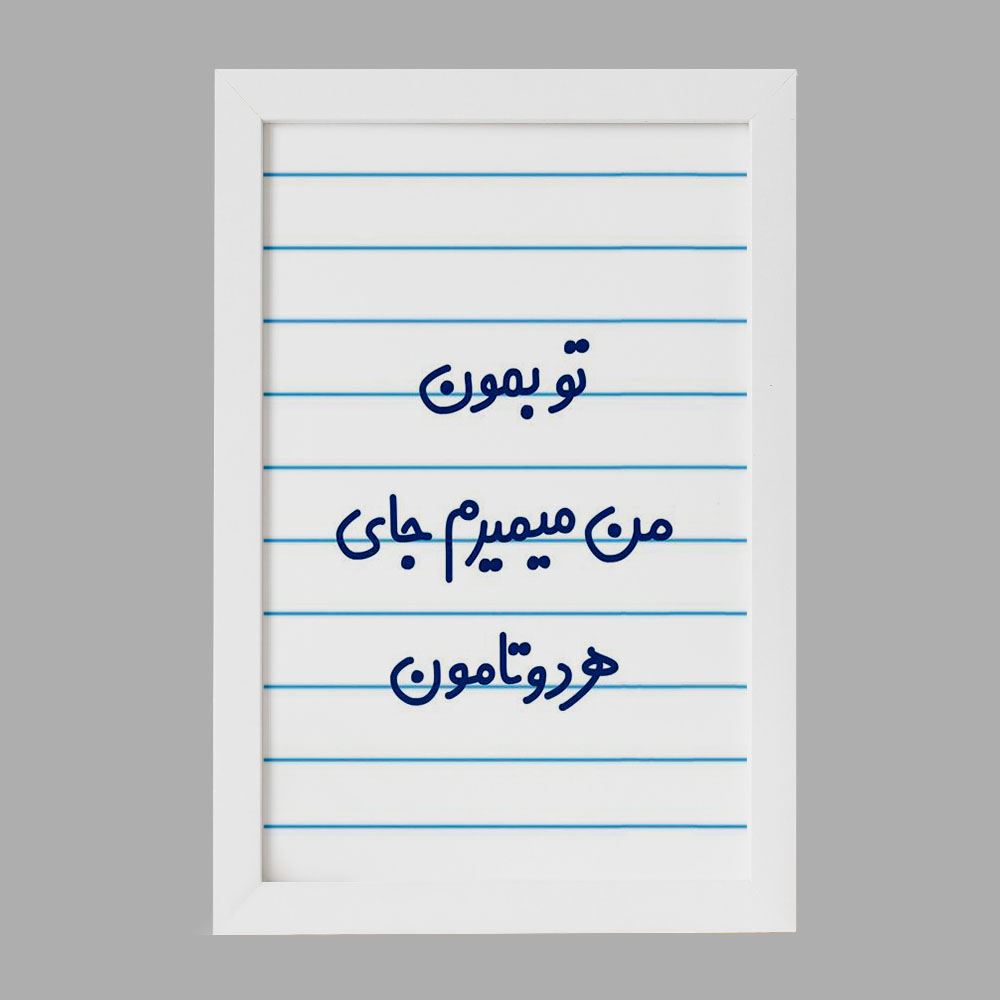 تو بمون
من میمیرم جای
هر دوتامون